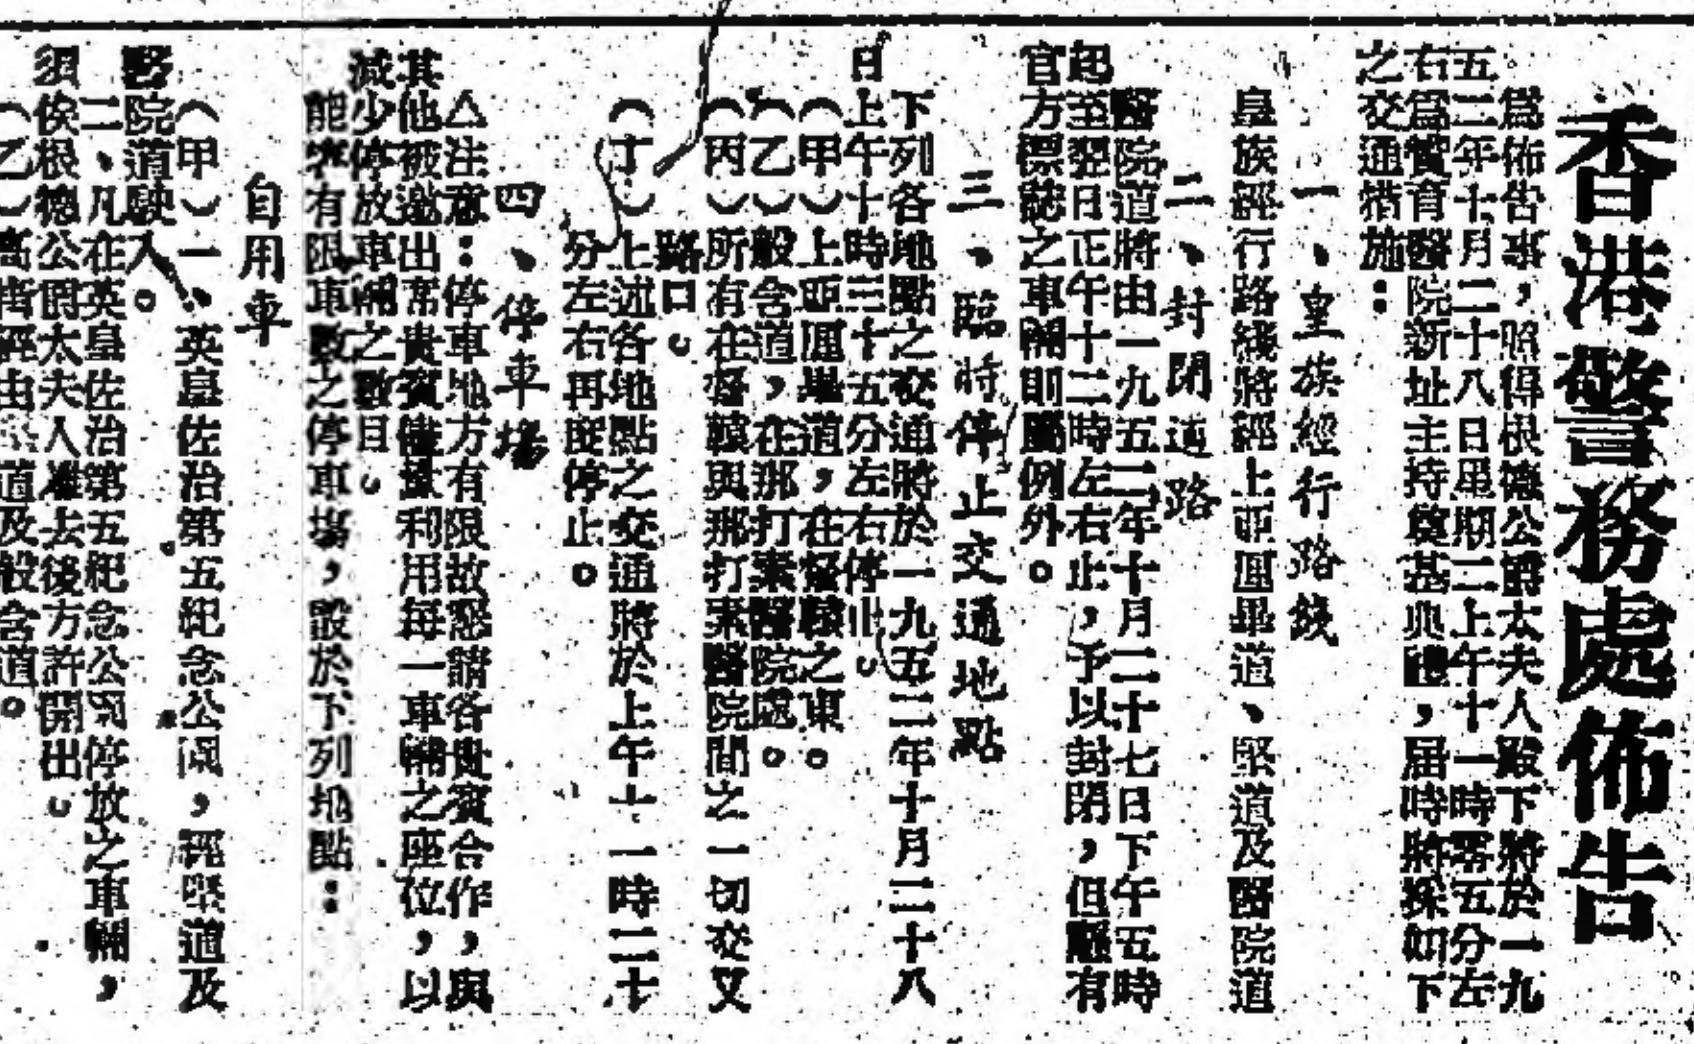 香港警務處佈告
爲佈告事，照得根德公爵太夫人殿下將於一九
五二年十月二十八日星期二上午十一時零五分左
右爲贊育醫院新址主持奠基典禮，屆時將採如下
之交通措施：
一、皇族經行路綫
皇族經行路綫將經上亞厘畢道、堅道及醫院道
二、封閉道路
醫院道將由一九五二年十月二十七日下午五時
起至翌日正午十二時左右止，予以封閉，但懸有
官方標誌之車輛則屬例外。
三、臨時停止交通地點
下列各地點之交通將於一九五二年十月二十八
日上午十時三十五分左右停止。
（甲）上亞厘畢道，在督轅之東。
（乙）般含道，在那打素醫院處。
（丙）所有在督轅與那打素醫院間之一切交叉
路口。
（丁）上述各地點之交通將於上午十一時二十
分左右再度停止。
四、停車塲
△注意：停車地方有限故懇請各貴賓合作，與
其他被邀出席貴賓儘量利用每一車輛之座位，以
减少停放車輛之數目。
能容有限車數之停車塲，設於下列地點：
自用車
（甲）一、英皇佐治第五紀念公園，經堅道及
醫院道駛入。
二、凡在英皇佐治第五紀念公園停放之車輛，
須俟根德公爵太夫人離去後方許開出。
（乙）高街經由 道及般含道。